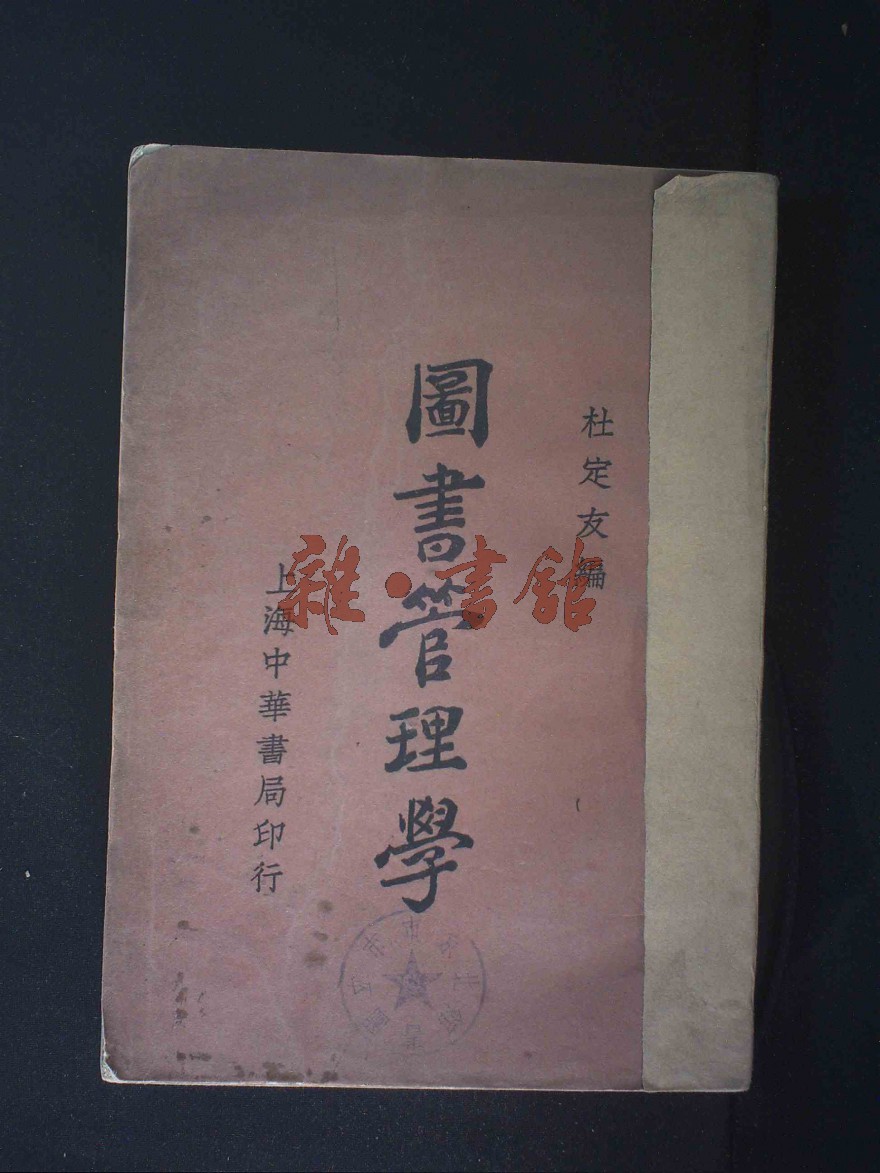 杜定友編
圖書管理學
上海中華書局印行
雜·書館